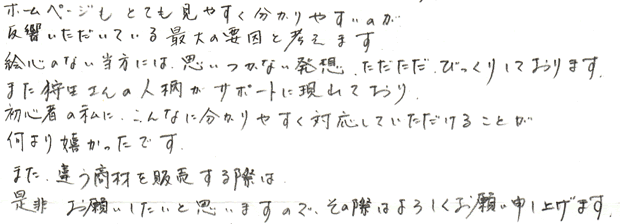 ホームページも とても見やすく分かりやすいのが
反響いただいている最大の要因と考えます
絵心のない当方には、思いつかない発想、ただただ、びっくりしております。
また狩生さんの人柄がサポートに現れており
初心者の私に、こんなに分かりやすく対応していただけることが
何より嬉かったです。
また、違う商材を販売する際は
是非 お願いしたいと思いますので、その際はよろしくお願い申し上げます。